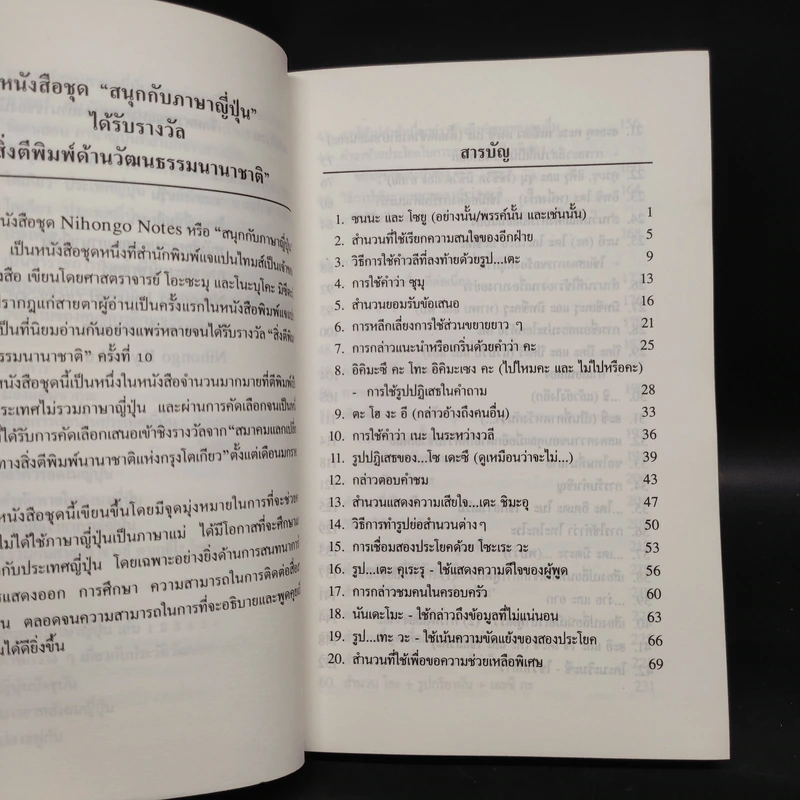 หนังสือชุด “สนุกกับภาษาญี่ปุ่น”
ได้รับรางวัล
สิ่งตีพิมพ์ด้านวัฒนธรรมนานาชาติ”
หนังสือชุด Nihongo Notes หรือ “สนุกกับภาษาญี่ปุ่น
เป็นหนังสือชุดหนึ่งที่สำนักพิมพ์แจแปนไทมส์เป็นเจ้าของ
เขียนโดยศาสตราจารย์ โอะซะมุ และโนะบุโกะ
ปรากฏแก่สายตาผู้อ่านเป็นครั้งแรกในหนังสือพิมพ์
เป็นที่นิยมอ่านกันอย่างแพร่หลายจนได้รับรางวัล
ครั้งที่ 10
หนังสือชุดนี้เป็นหนึ่งในหนังสือจำนวนมากมายที่ตีพิมพ์
ประเทศไม่รวมภาษาญี่ปุ่น และผ่านการคัดเลือกจนเป็น
ได้รับการคัดเลือกเสนอเข้าชิงรางวัลจาก
ทางสิ่งตีพิมพ์นานาชาติแห่งกรุงโตเกียว” ตั้งแต่เดือน
หนังสือชุดนี้เขียนขึ้นโดยมีจุดมุ่งหมายในการที่จะช่วย
ไม่ได้ใช้ภาษาญี่ปุ่นเป็นภาษาแม่ ได้มีโอกาสที่จะศึกษา
กับประเทศญี่ปุ่น โดยเฉพาะอย่างยิ่งด้านการสนทนา
การศึกษา ความสามารถในการติดต่อ
ตลอดจนความสามารถในการที่จะอธิบายและ
ได้ดียิ่งขึ้น
สารบัญ
1. ซนนะ และ โซยู (อย่างนั้น/พรรค์นั้น และเช่นนั้น) 1
2. สำนวนที่ใช้เรียกความสนใจของอีกฝ่าย 5
3. วิธีการใช้คำวลีที่ลงท้ายด้วยรูป...เตะ 9
4. การใช้คำว่า ซุมุ 13
5. สำนวนยอมรับข้อเสนอ 16
6. การหลีกเลี่ยงการใช้ส่วนขยายยาว ๆ 21
7. การกล่าวแนะนำหรือเกริ่นด้วยคำว่า คะ 25
8. อิคิมะซึ คะ โทะ อิคิมะเซง คะ (ไปไหมคะ และ ไม่ไปหรือคะ)
- การใช้รูปปฏิเสธในคำถาม 28
9. ตะ โฮ งะ อี (กล่าวอ้างถึงคนอื่น) 33
10. การใช้คำว่า เนะ ในระหว่างวลี 36
11. รูปปฏิเสธของ...โซ เดะซึ (ดูเหมือนว่าจะไม่...) 39
12. กล่าวตอบคำชม 43
13. สำนวนแสดงความเสียใจ...เตะ ชิมะอุ 47
14. วิธีการทำรูปย่อสำนวนต่าง ๆ 50
15. การเชื่อมสองประโยคด้วย โซะเระ วะ 53
16. รูป...เตะ คุเระรุ - ใช้แสดงความดีใจของผู้พูด 56
17. การกล่าวชมคนในครอบครัว 60
18. นันเดะโมะ - ใช้กล่าวถึงข้อมูลที่ไม่แน่นอน 63
19. รูป...เทะ วะ - ใช้เน้นความขัดแย้งของสองประโยค 66
20. สำนวนที่ใช้เพื่อขอความช่วยเหลือพิเศษ 69